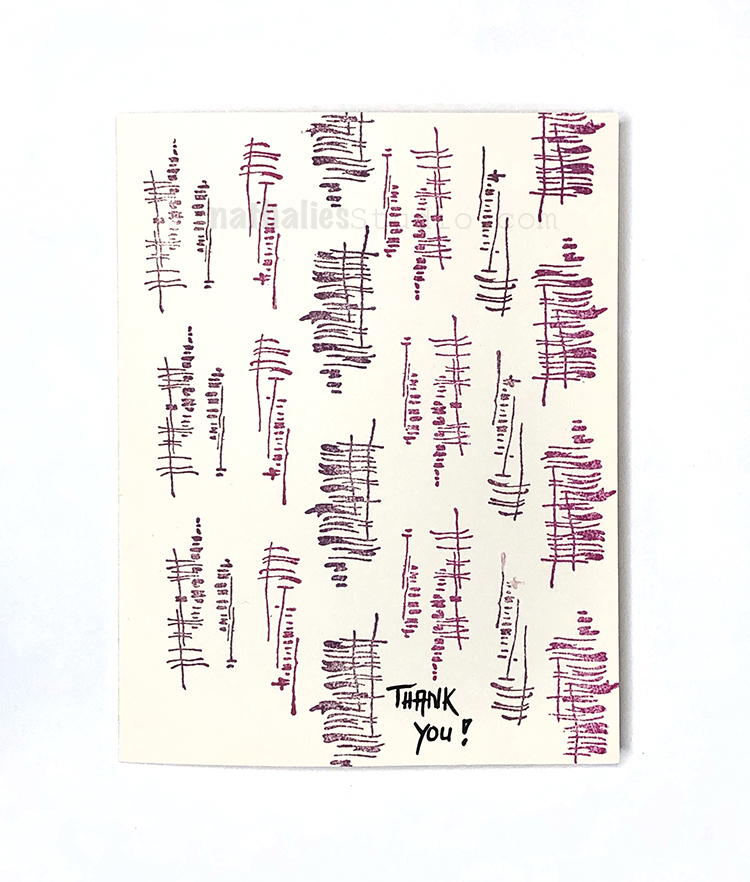 nathaliesStudio.com
THANK
YOU!